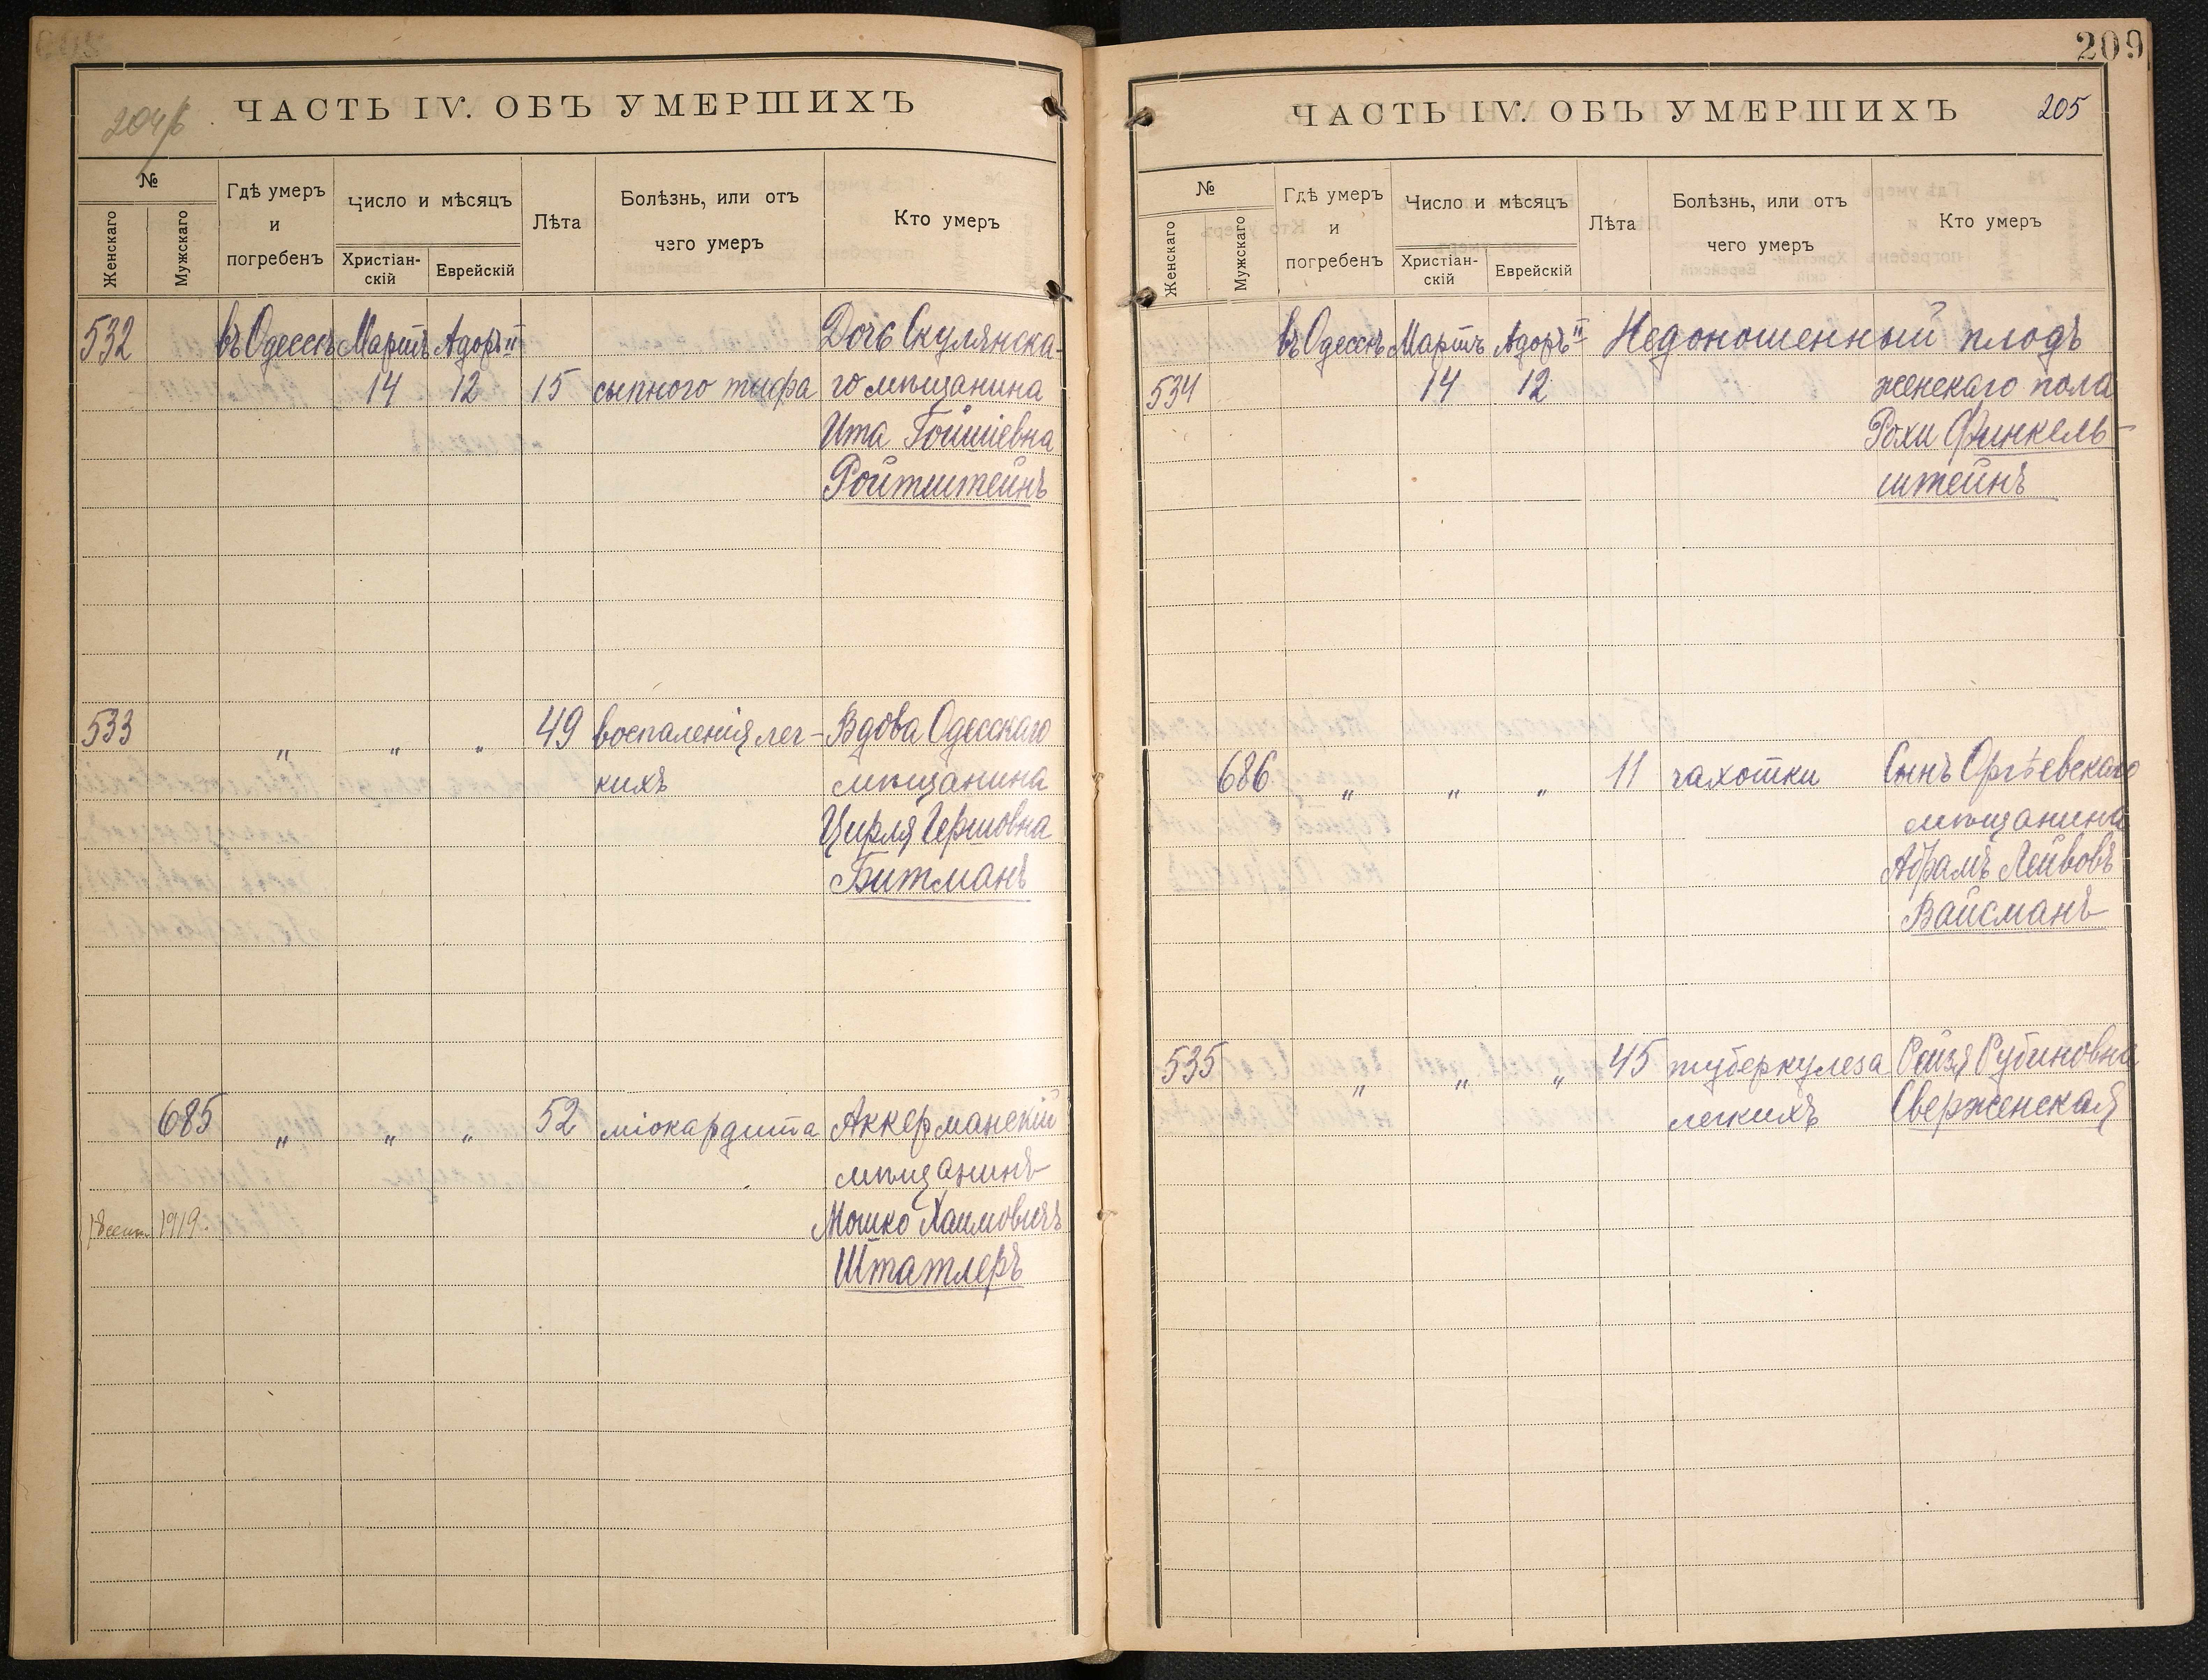 204/б
ЧАСТЬ IV. ОБЪ УМЕРШИХЪ
№
Женскаго
Мужскаго
Гдѣ умеръ
и
погребенъ
Число и мѣсяцъ
Христіан-
скій
Еврейскій
Лѣта
Болѣзнь, или отъ
чего умеръ
Кто умеръ
532 въ Одессѣ Мартъ Адоръ II Дочь Скулянска-
14 12 15 сыпного тифа го мѣщанина
Ита
Ройтштейнъ
533 " " " 49 воспаленія лег- Вдова Одесскаго
кихъ мѣщанина
Цирля Гершовна
Битманъ
685 " " " 52 міокардита Аккерманскій
мѣщанинъ
Мошко Хаимовичъ
1919. Штатлеръ
209
ЧАСТЬ IV. ОБЪ УМЕРШИХЪ 205
№
Женскаго
Мужскаго
Гдѣ умеръ
и
погребенъ
Число и мѣсяцъ
Христіан-
скій
Еврейскій
Лѣта
Болѣзнь, или отъ
чего умеръ
Кто умеръ
въ Одессѣ Мартъ Адоръ II Недоношенный плодъ
534 14 12 женскаго пола
Рохи Финкель-
штейнъ
686 " " " 11 чахотки Сынъ Оргѣевскаго
мѣщанина
Абрамъ Лейбовъ
Вайсманъ
535 " " " 45 туберкулеза Рейзя Рубиновна
легкихъ Сверженская